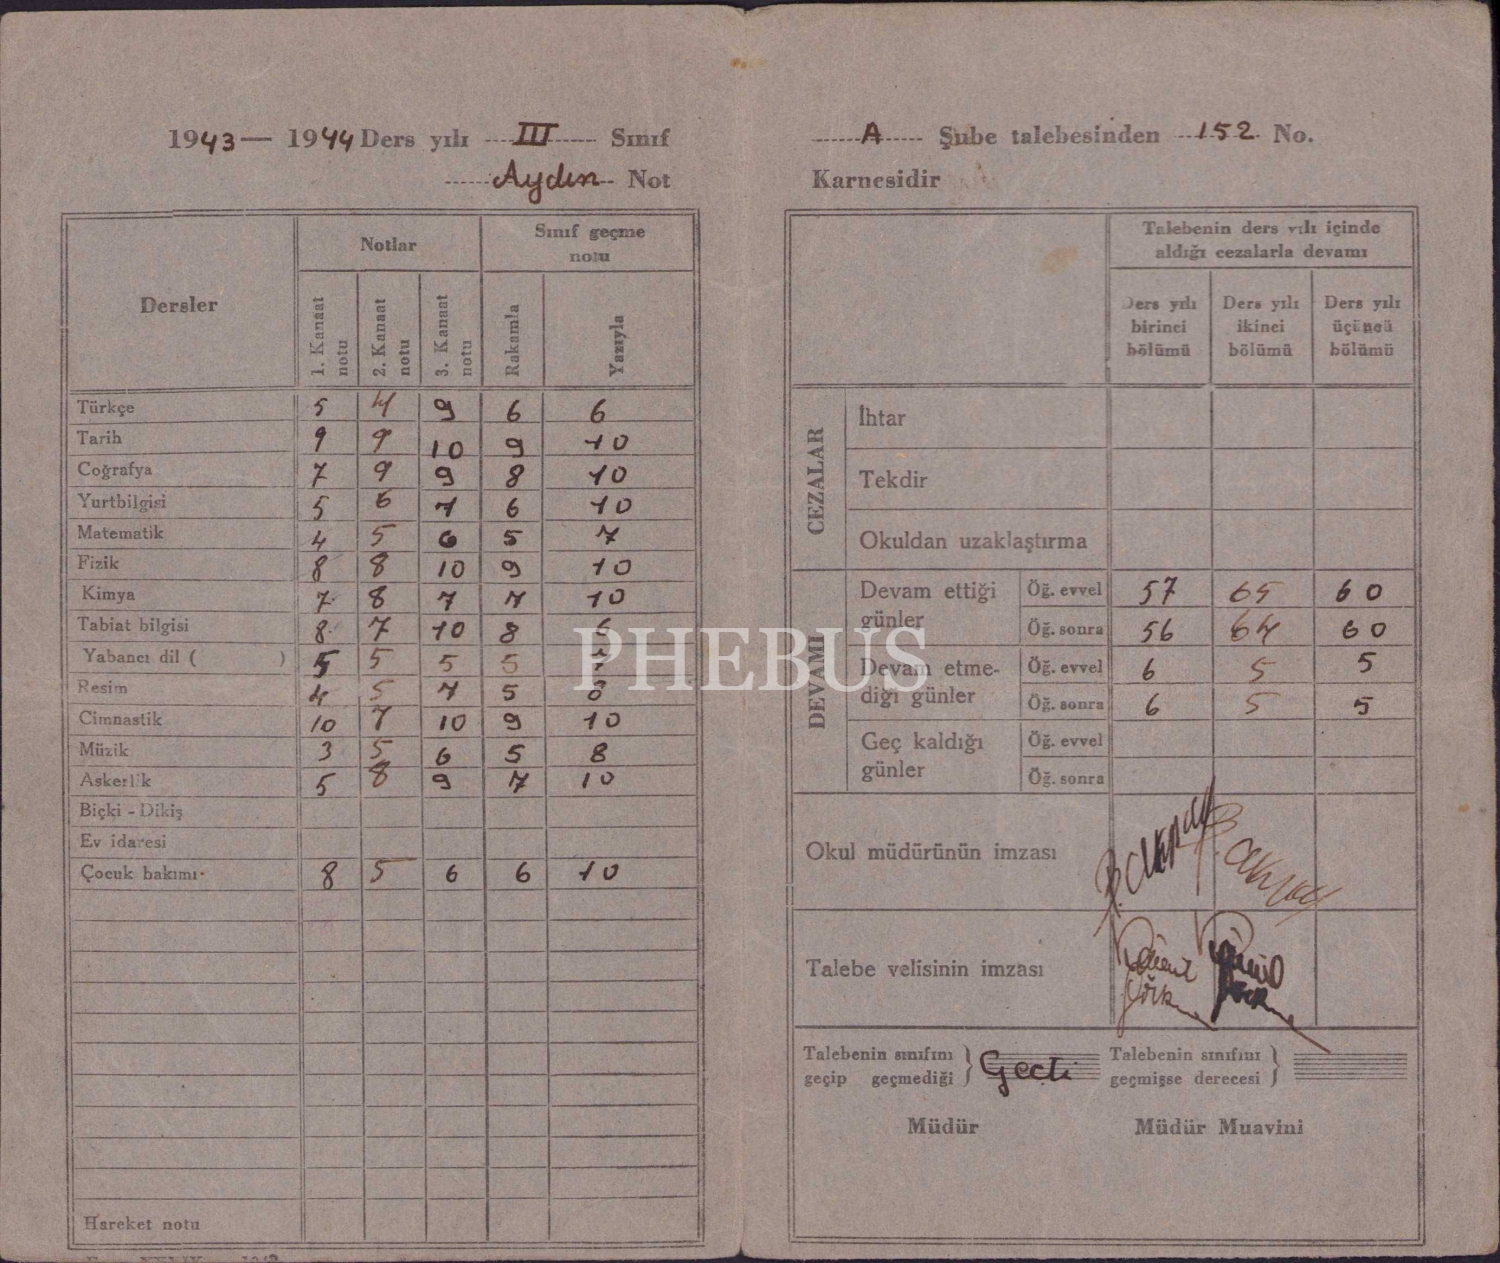 1943 — 1944 Ders yılı III Sınıf
Aydın Not
Dersler
Notlar
Sınıf geçme
notu
1. Kanaat notu
2. Kanaat notu
3. Kanaat notu
Rakamla
Yazıyla
Türkçe 5 4 9 6 6
Tarih 9 9 10 9 10
Coğrafya 7 9 9 8 10
Yurtbilgisi 5 6 7 6 10
Matematik 4 5 6 5 7
Fizik 8 8 10 9 10
Kimya 7 8 7 7 10
Tabiat bilgisi 8 7 10 8
Yabancı dil ( ) 5 5 5 5
Resim 4 5 7 5
Cimnastik 10 7 10 9 10
Müzik 3 5 6 5 8
Askerlik 5 8 9 7 10
Biçki - Dikiş
Ev idaresi
Çocuk bakımı 8 5 6 6 10
Hareket notu
A Şube talebesinden 152 No.
Karnesidir
Talebenin ders yılı içinde
aldığı cezalarla devamı
Ders yılı birinci bölümü
Ders yılı ikinci bölümü
Ders yılı üçüncü bölümü
CEZALAR
İhtar
Tekdir
Okuldan uzaklaştırma
DEVAMI
Devam ettiği günler
Öğ. evvel 57 65 60
Öğ. sonra 56 64 60
Devam etmediği günler
Öğ. evvel 6 5 5
Öğ. sonra 6 5 5
Geç kaldığı günler
Öğ. evvel
Öğ. sonra
Okul müdürünün imzası
Talebe velisinin imzası
Talebenin sınıfını
geçip geçmediği } Geçti
Talebenin sınıfını
geçmişse derecesi }
Müdür Müdür Muavini
PHEBUS